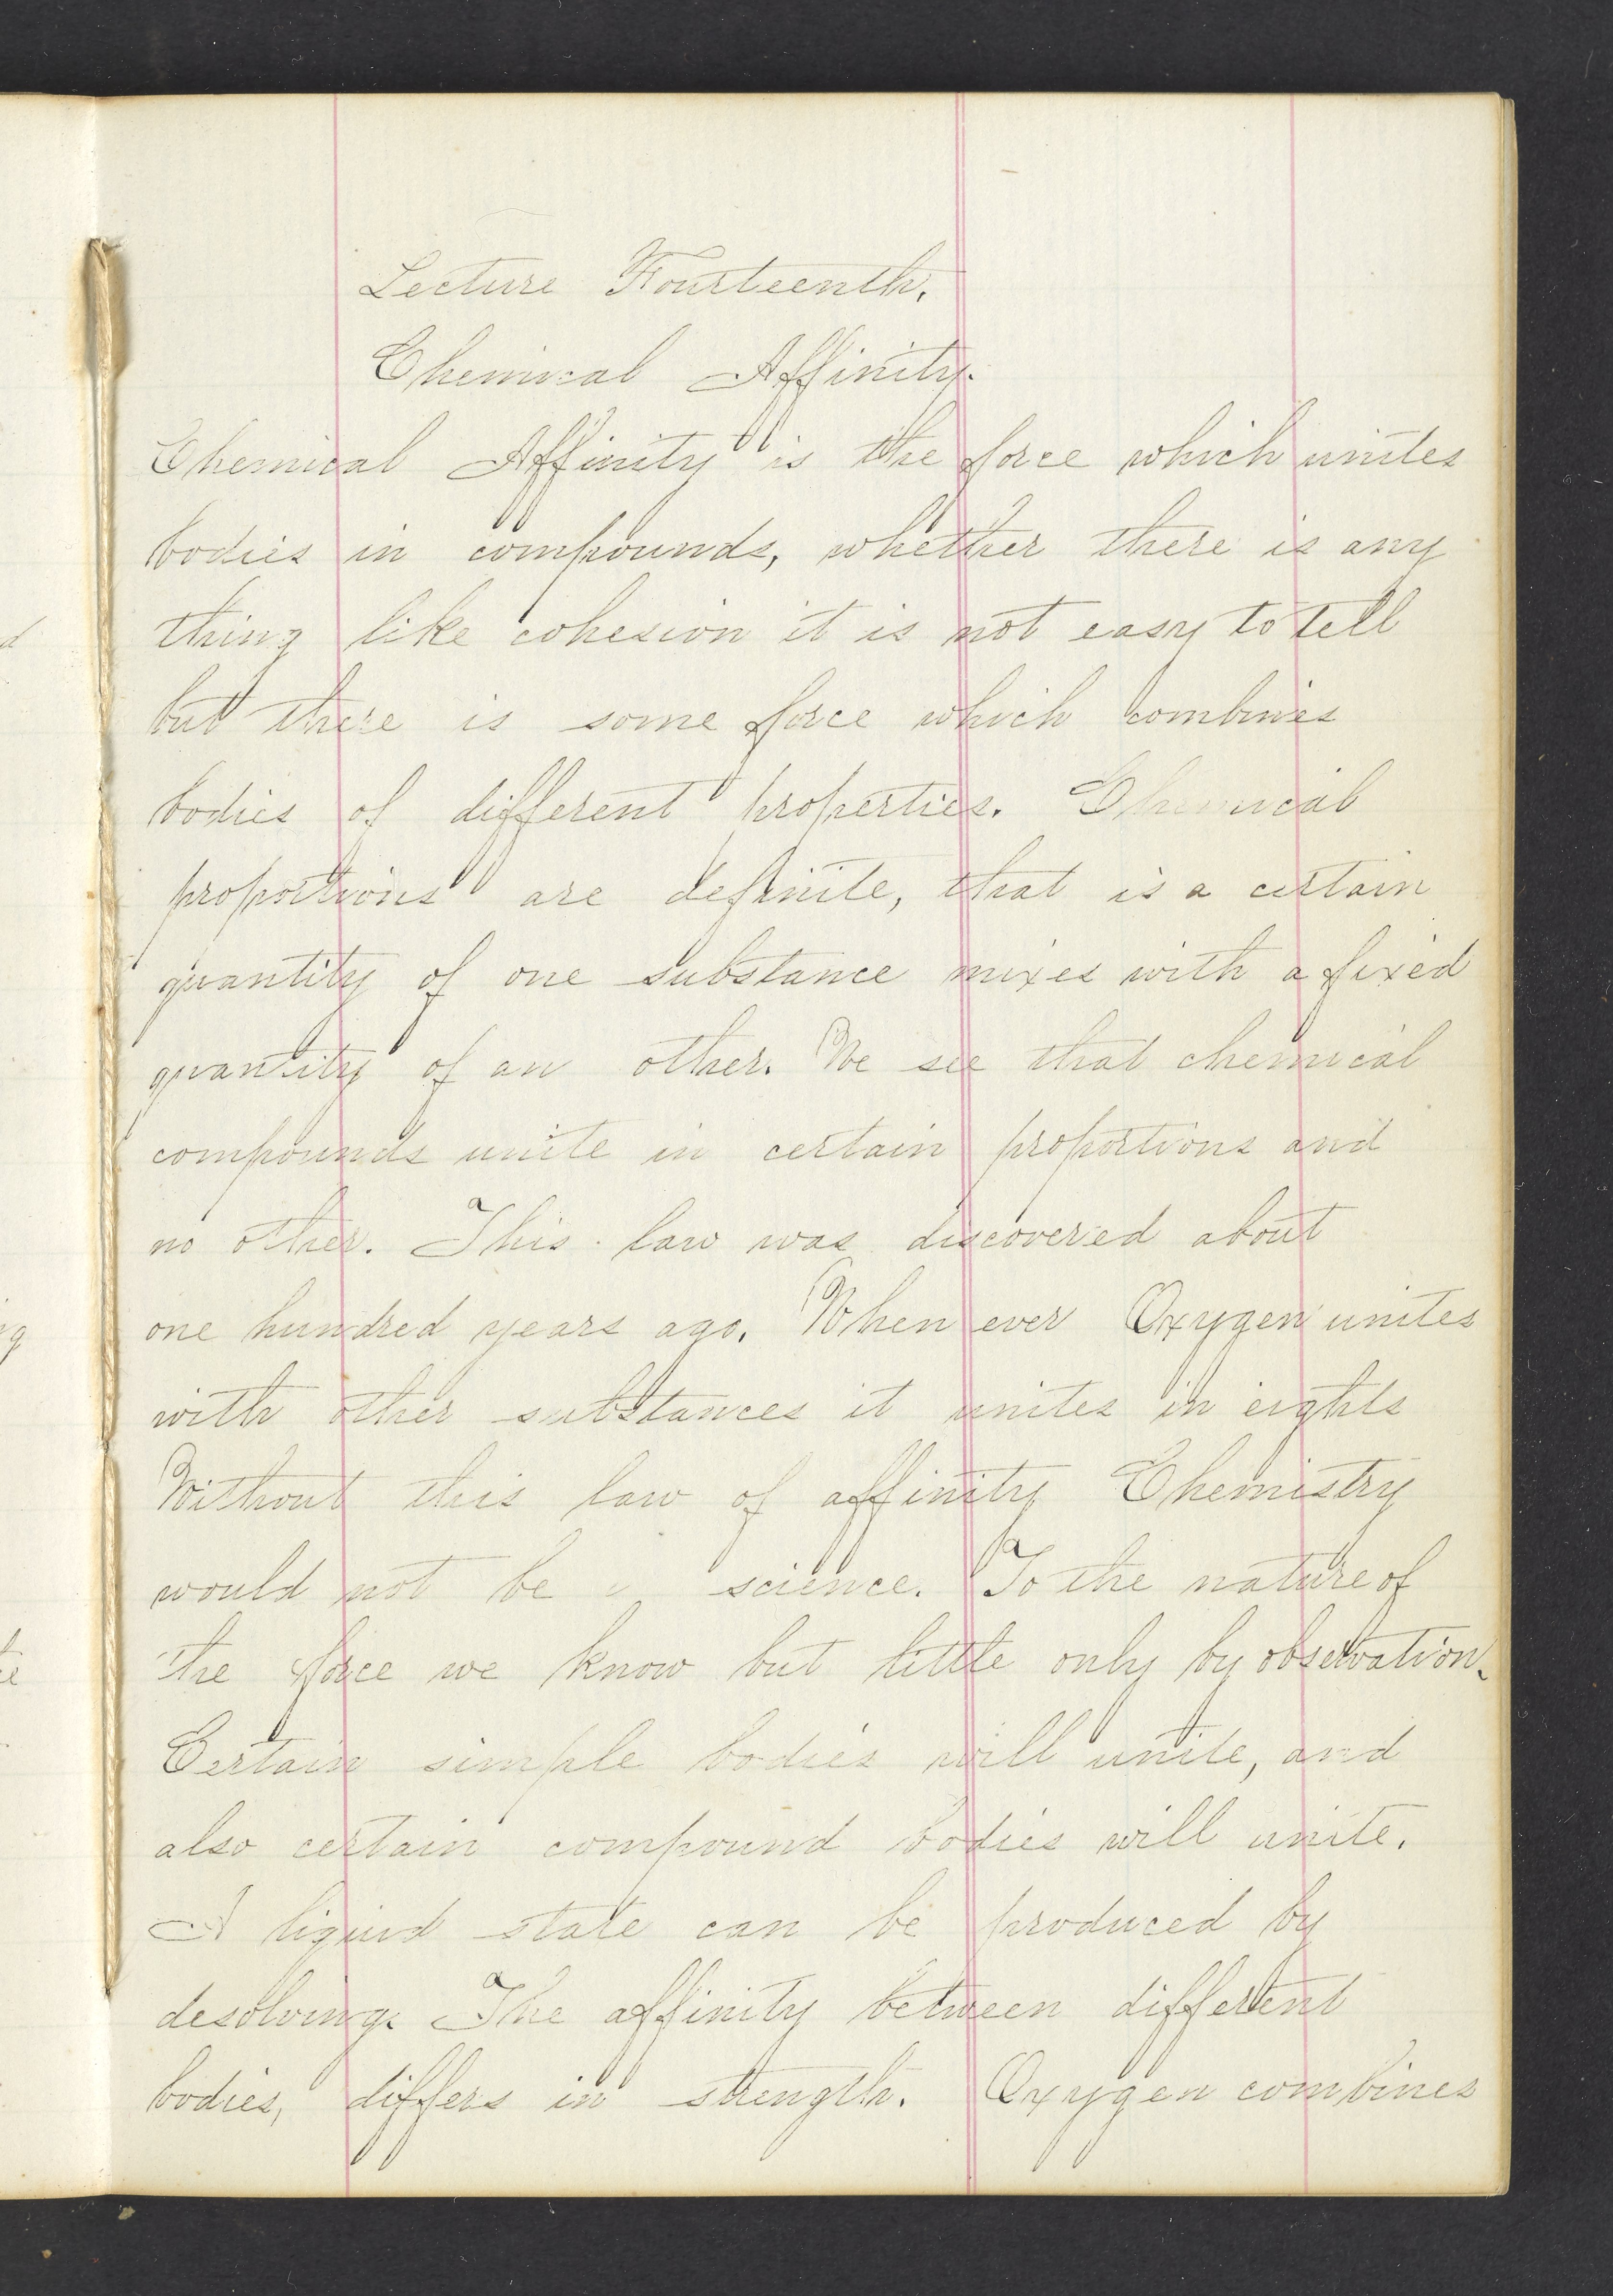 Lecture Fourteenth.
Chemical Affinity.
Chemical Affinity is the force which unites
bodies in compounds, whether there is any
thing like cohesion it is not easy to tell
but there is some force which combines
bodies of different properties. Chemical
proportions are definite, that is a certain
quantity of one substance mixes with a fixed
quantity of an other. We see that chemical
compounds unite in certain proportions and
no other. This law was discovered about
one hundred years ago. When ever Oxygen unites
with other substances it unites in eights
Without this law of affinity Chemistry
would not be a science. To the nature of
the force we know but little only by observation.
Certain simple bodies will unite, and
also certain compound bodies will unite.
A liquid state can be produced by
desolving. The affinity between different
bodies, differs in strength. Oxygen combines